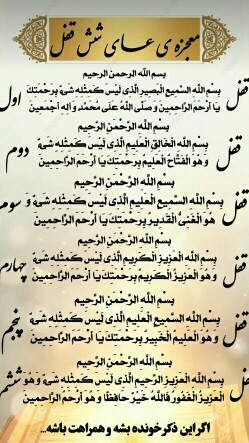 معجزه ی عای شش قفل
بسم الله الرحمن الرحیم
قفل اول
بِسْمِ اللّٰهِ السَّمیعِ الْبَصیرِ الَّذی لَیْسَ کَمِثْلِهِ شَیْءٌ بِرَحْمَتِکَ
یَا اَرْحَمَ الرّاحِمینَ وَ صَلَّی اللّٰهُ عَلی مُحَمَّدٍ وَ الِهِ اَجْمَعینَ
بِسْمِ اللّٰهِ الرَّحْمنِ الرَّحیمِ
قفل دوم
بِسْمِ اللّٰهِ الْخالِقِ الْعَلیمِ الَّذی لَیْسَ کَمِثْلِهِ شَیْءٌ
وَ هُوَ الْفَتّاحُ الْعَلیمُ بِرَحْمَتِکَ یا اَرْحَمَ الرّاحِمینَ
بِسْمِ اللّٰهِ الرَّحْمنِ الرَّحیمِ
قفل سوم
بِسْمِ اللّٰهِ السَّمیعِ الْعَلیمِ الَّذی لَیْسَ کَمِثْلِهِ شَیْءٌ وَ
هُوَ الْغَنِیُّ الْقَدیرُ بِرَحْمَتِکَ یا اَرْحَمَ الرّاحِمینَ
بِسْمِ اللّٰهِ الرَّحْمنِ الرَّحیمِ
قفل چهارم
بِسْمِ اللّٰهِ الْعَزیزِ الْکَریمِ الَّذی لَیْسَ کَمِثْلِهِ شَیْءٌ
وَ هُوَ الْعَزیزُ الْکَریمُ بِرَحْمَتِکَ یا اَرْحَمَ الرّاحِمینَ
بِسْمِ اللّٰهِ الرَّحْمنِ الرَّحیمِ
قفل پنجم
بِسْمِ اللّٰهِ السَّمیعِ الْعَلیمِ الَّذی لَیْسَ کَمِثْلِهِ شَیْءٌ
وَ هُوَ الْعَلیمُ الْخَبیرُ بِرَحْمَتِکَ یا اَرْحَمَ الرّاحِمینَ
بِسْمِ اللّٰهِ الرَّحْمنِ الرَّحیمِ
ششم
بِسْمِ اللّٰهِ الْعَزیزِ الرَّحیمِ الَّذی لَیْسَ کَمِثْلِهِ شَیْءٌ وَ هُوَ
الْعَزیزُ الْغَفُورُ فَاللّٰهُ خَیْرٌ حافِظًا وَ هُوَ اَرْحَمُ الرّاحِمینَ
اگر این ذکر خونده بشه و همراهت باشه...